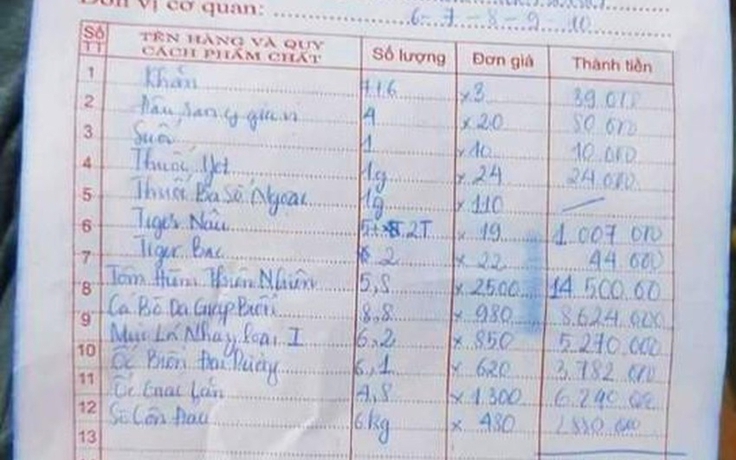 Đơn vị cơ quan: 6 - 7 - 8 - 9 - 10
Số TT TÊN HÀNG VÀ QUY CÁCH PHẨM CHẤT Số lượng Đơn giá Thành tiền
1 Khăn ×3 39.000
2 4 ×20 80 000
3 Suối 1 ×10 10.000
4 Thuốc Jet 1g ×24 24.000
5 Thuốc Ba Số Ngoại 1g ×110
6 Tiger Nâu 2T × 19 1.007 000
7 Tiger Bạc 2 × 22 44 000
8 Tôm Hùm Thiên Nhiên 5,8 × 2500 14 500.00
9 Cá Bò Da Giáp Biển 8.8 × 980 8.624.000
10 Mực Lá Nháy Loại I 6,2 × 850 5.270 000
11 Ốc Biển 6,1 × 620 3.782 000
12 Ốc 4,8 × 1.300 6.240.00
13 Sò Côn Đảo 6kg × 480 2.880.000